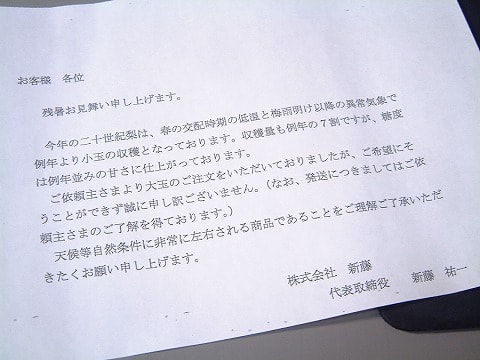 お客様 各位
残暑お見舞い申し上げます。
今年の二十世紀梨は、春の交配時期の低温と梅雨明け以降の異常気象で
例年より小玉の収穫となっております。収穫量も例年の7割ですが、糖度
は例年並みの甘さに仕上がっております。
ご依頼主さまより大玉のご注文をいただいておりましたが、ご希望にそ
うことができず誠に申し訳ございません。(なお、発送につきましてはご依
頼主さまのご了解を得ております。)
天候等自然条件に非常に左右される商品であることをご理解ご了承いただ
きたくお願い申し上げます。
株式会社 新藤
代表取締役 新藤 祐一